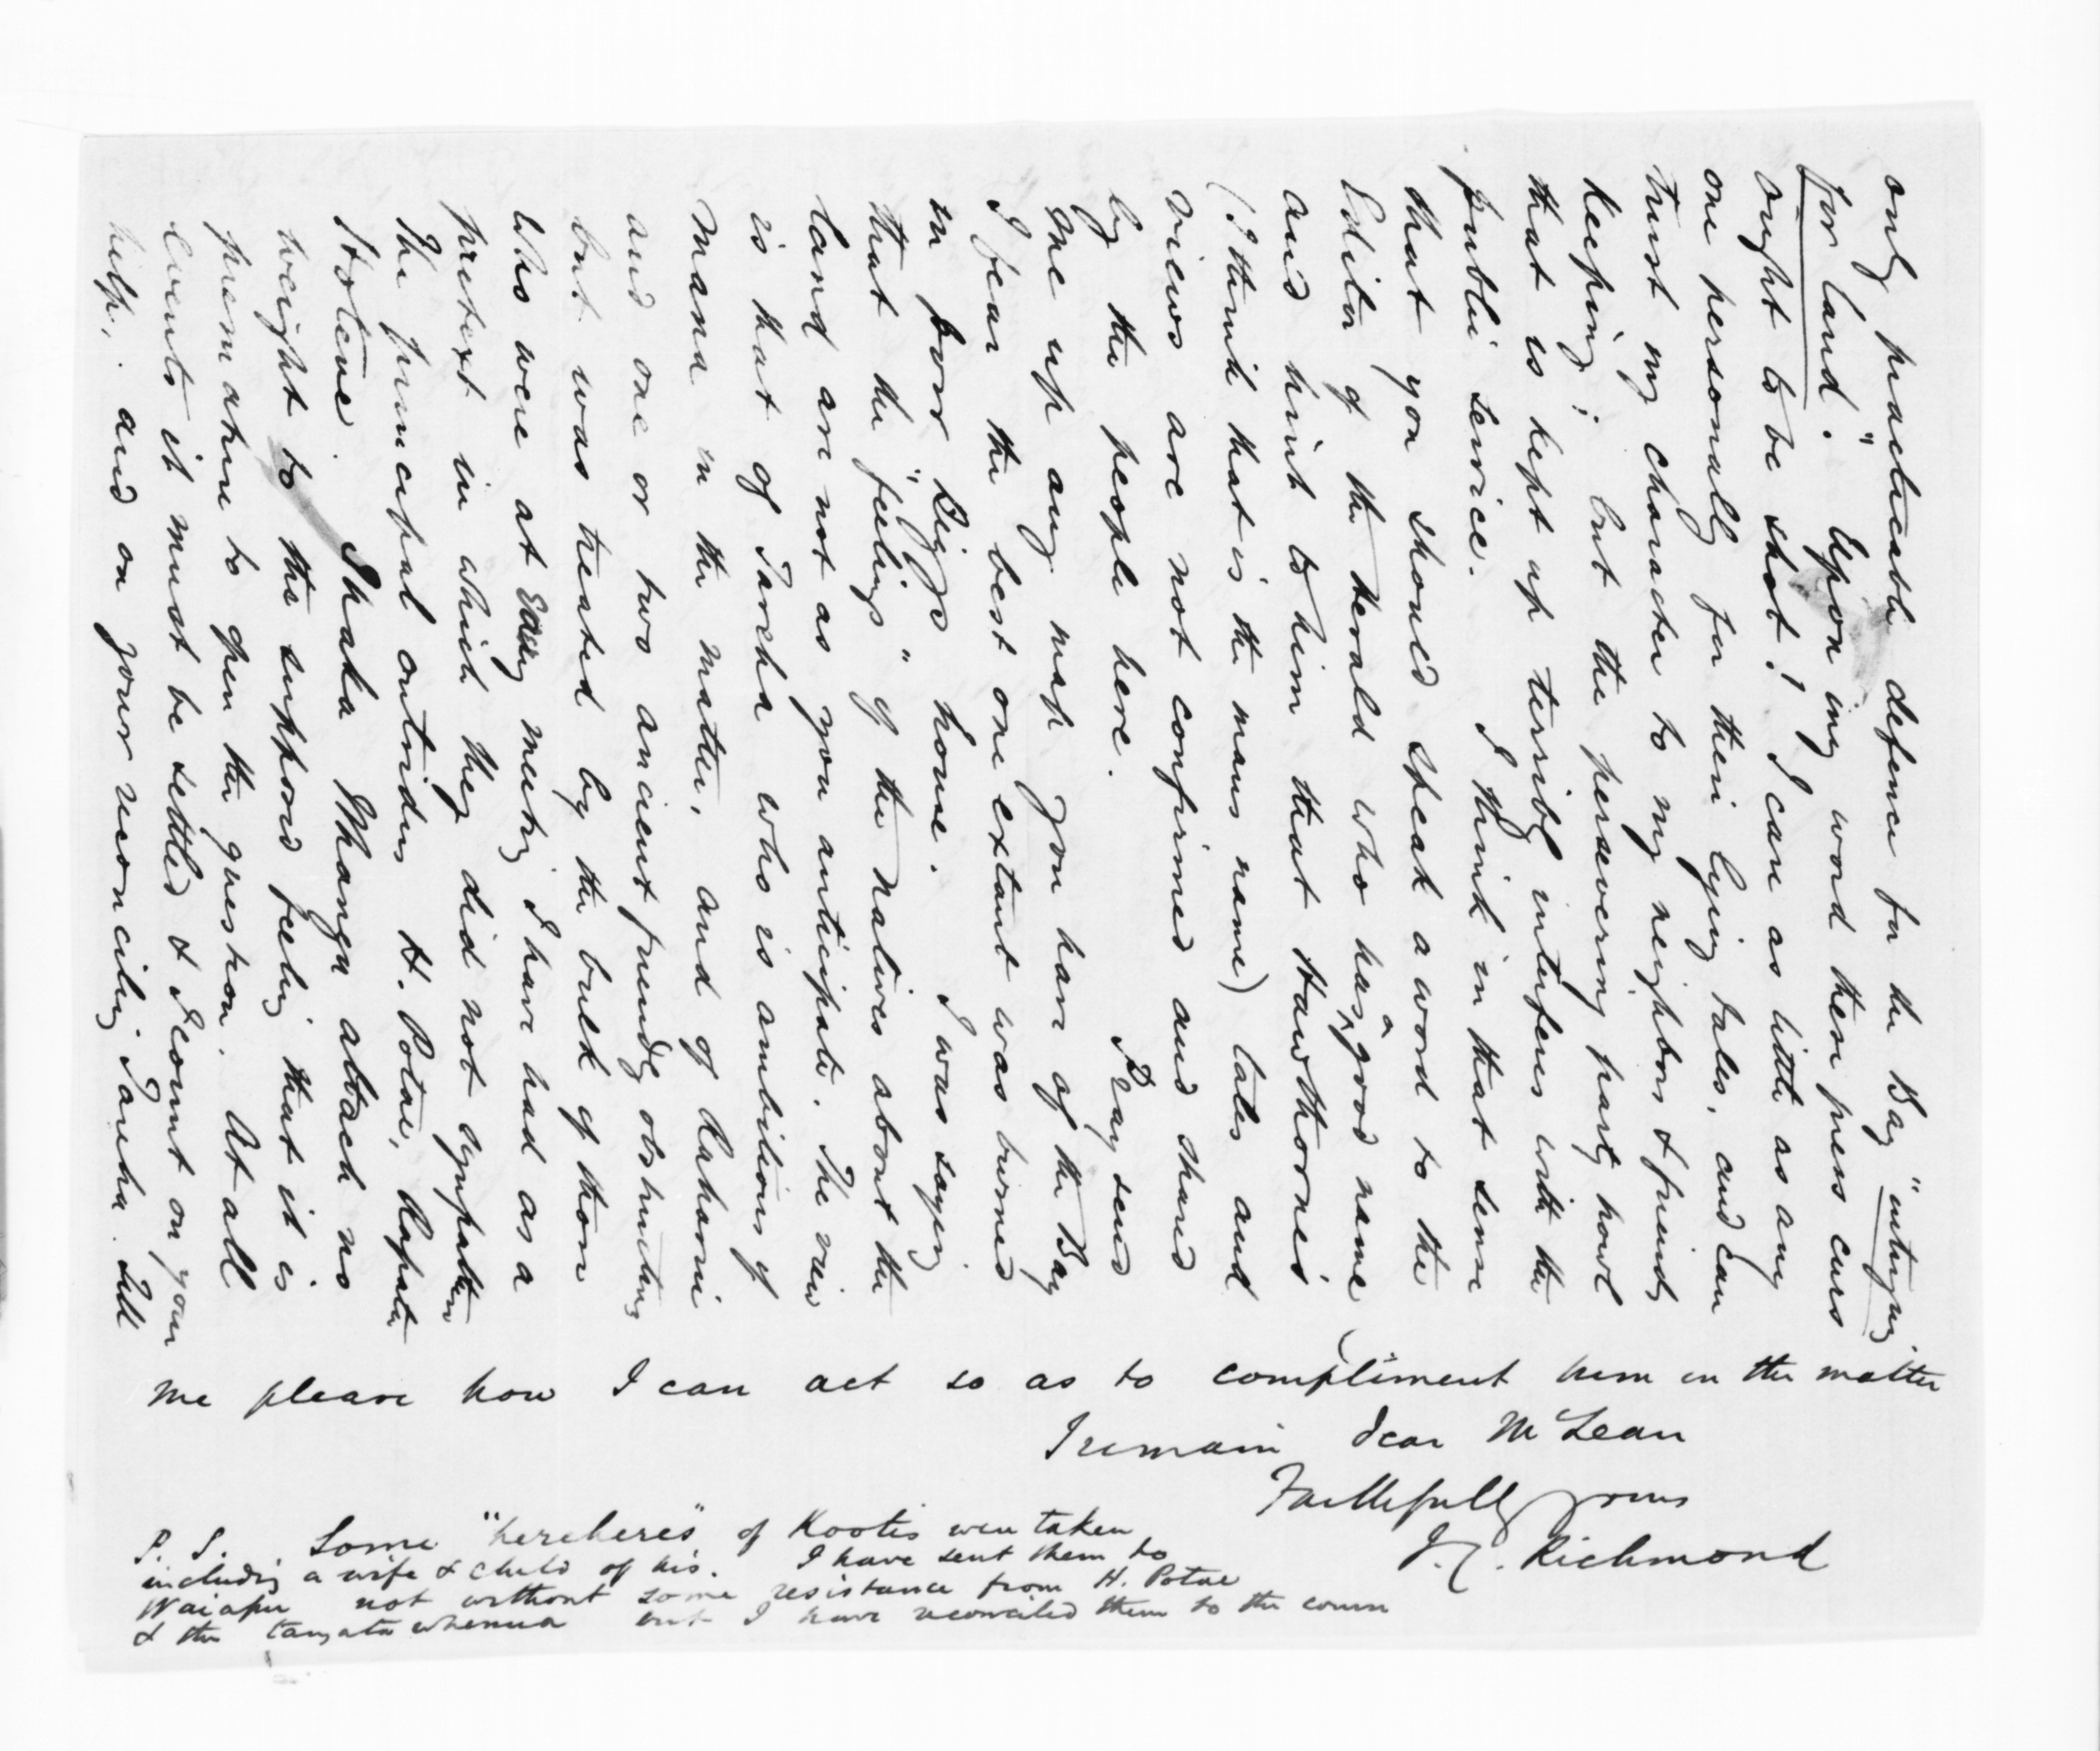 only practicable defence for the Bay "intriguing
for land". Upon my word these press curs
ought to be shot! I care as little as any
one personally for their lying tales, and can
trust my character to my neighbors & friends
keeping; but the persevering party howl
that is kept up terribly interferes with the
public service. I think in that sense
that you should speak a word to the
Editor of the Herald who has a good name
and hint to him that Hawthorne's
(I think that is the mans name) tales and
views are not confirmed and shared
by the people here. Pray send
me up any map you have of the Bay
I fear the best one extant was burned
in poor Biggs house. I was saying
that the "feelings" of the natives about the
land are not as you anticipate. The view
is that of Tareha who is ambitious of
mana in the matter, and of Karauria
and one or two ancient friendly obstructives
but was treated by the bulk of those
who were at every meeting I have had as a
pretext in which they did not sympathise
The principal outsiders H. Potae, Rapata
Hotene. Ihaka Whanga attach no
weight to the supposed feeling that it is
premature to open the question. At all
events it must be settled & I count on your
help, and on your reconciling Tareha. Tell
me please how I can act so as to compliment him in the matter
I remain dear McLean
Faithfully yours
J.C. Richmond
P.S. Some "hereheres" of Kootis were taken
including a wife & child of his. I have sent them to
Waiapu not without some resistance from H. Potae
& the tangata whenua but I have reconciled them to the course